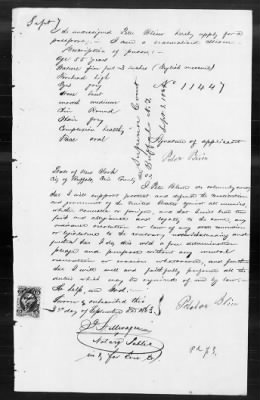 Sept 7
The undersigned Peter Blein hereby apply for a
passport, - I am a naturalized citizen
Description of person:
Age 55 years
Stature five feet 3 inches (English measure)
Forehead high
Eyes gray
Nose bent
mouth medium
Chin Round
Hair gray
Complexion healthy
Face oval
No 11447
Superior Court
Buffalo N.Y.
Signature of applicant
State of New York
City of Buffalo, Erie County
I Peter Blein do solemnly swear
that I will support protect and defend the Constitution
and government of the United States against all enemies,
whether domestic or foreign, and that I will bear true
faith and allegiance and loyalty to the same, any
ordinance resolution or law of any state convention
or legislature to the contrary notwithstanding and
further that I do this with a full determination,
pledge and purpose without any mental
reservation or evasion whatsoever, and further
that I will well and faithfully perform all the
duties which may be required of me by law;
So help me God.
Sworn & subscribed this
day of September 1863
Notary Public
in & for Erie Co